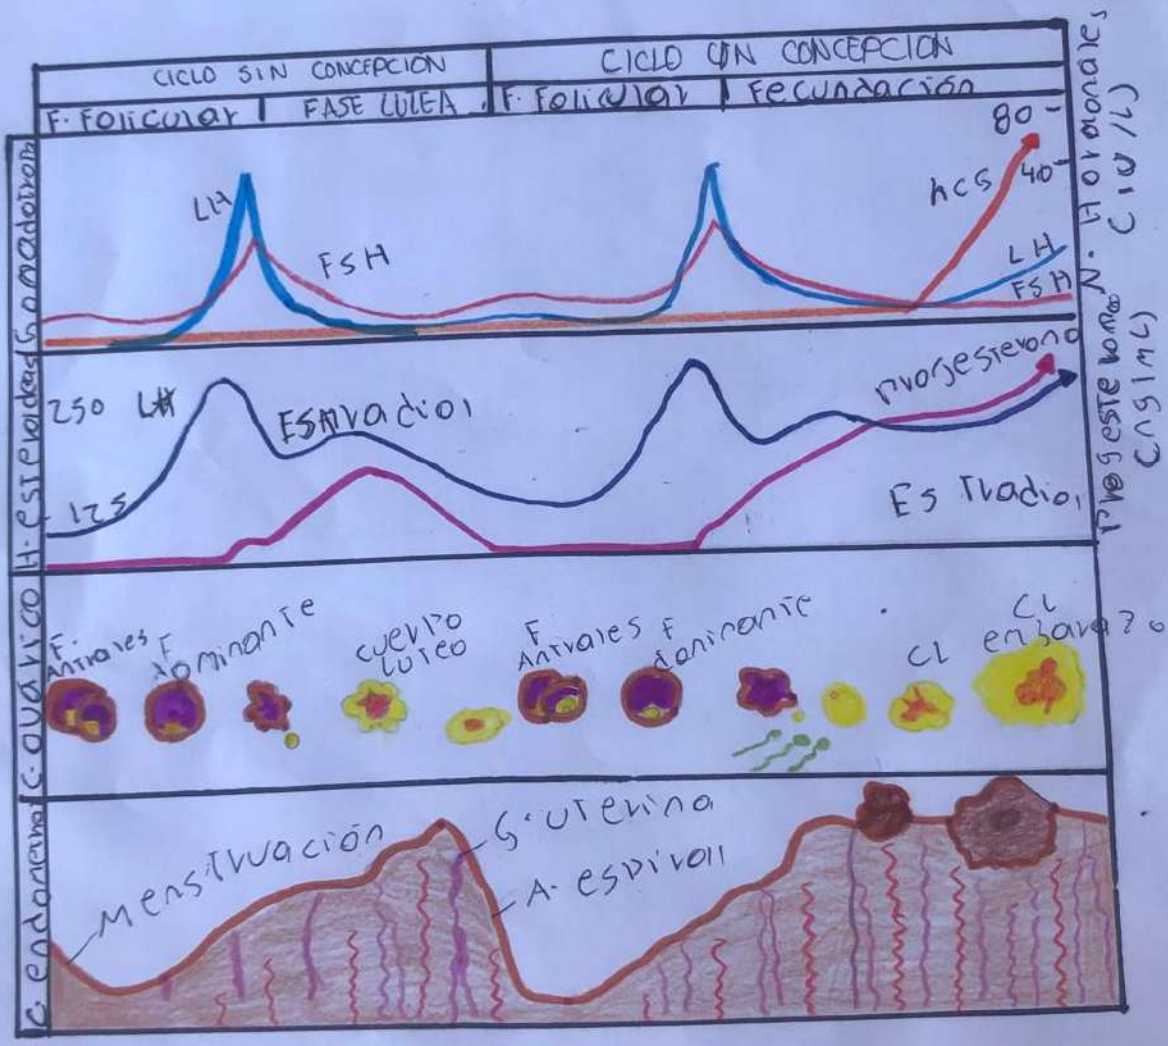 CICLO SIN CONCEPCIÓN
CICLO CON CONCEPCIÓN
F. Folicular
FASE LUTEA
F. Folicular
Fecundación
N. Hormonales
(IU/L)
80
40
hCG
LH
FSH
LH
FSH
H. esteroideas
250
125
Estradiol
Progesterona
Estradiol
Progesterona
C. ovarico
F. Antrales
F dominante
cuerpo
luteo
F
Antrales
F
dominante
CL
CL
embarazo
C endometrial
Menstruación
G. uterina
A. espiral